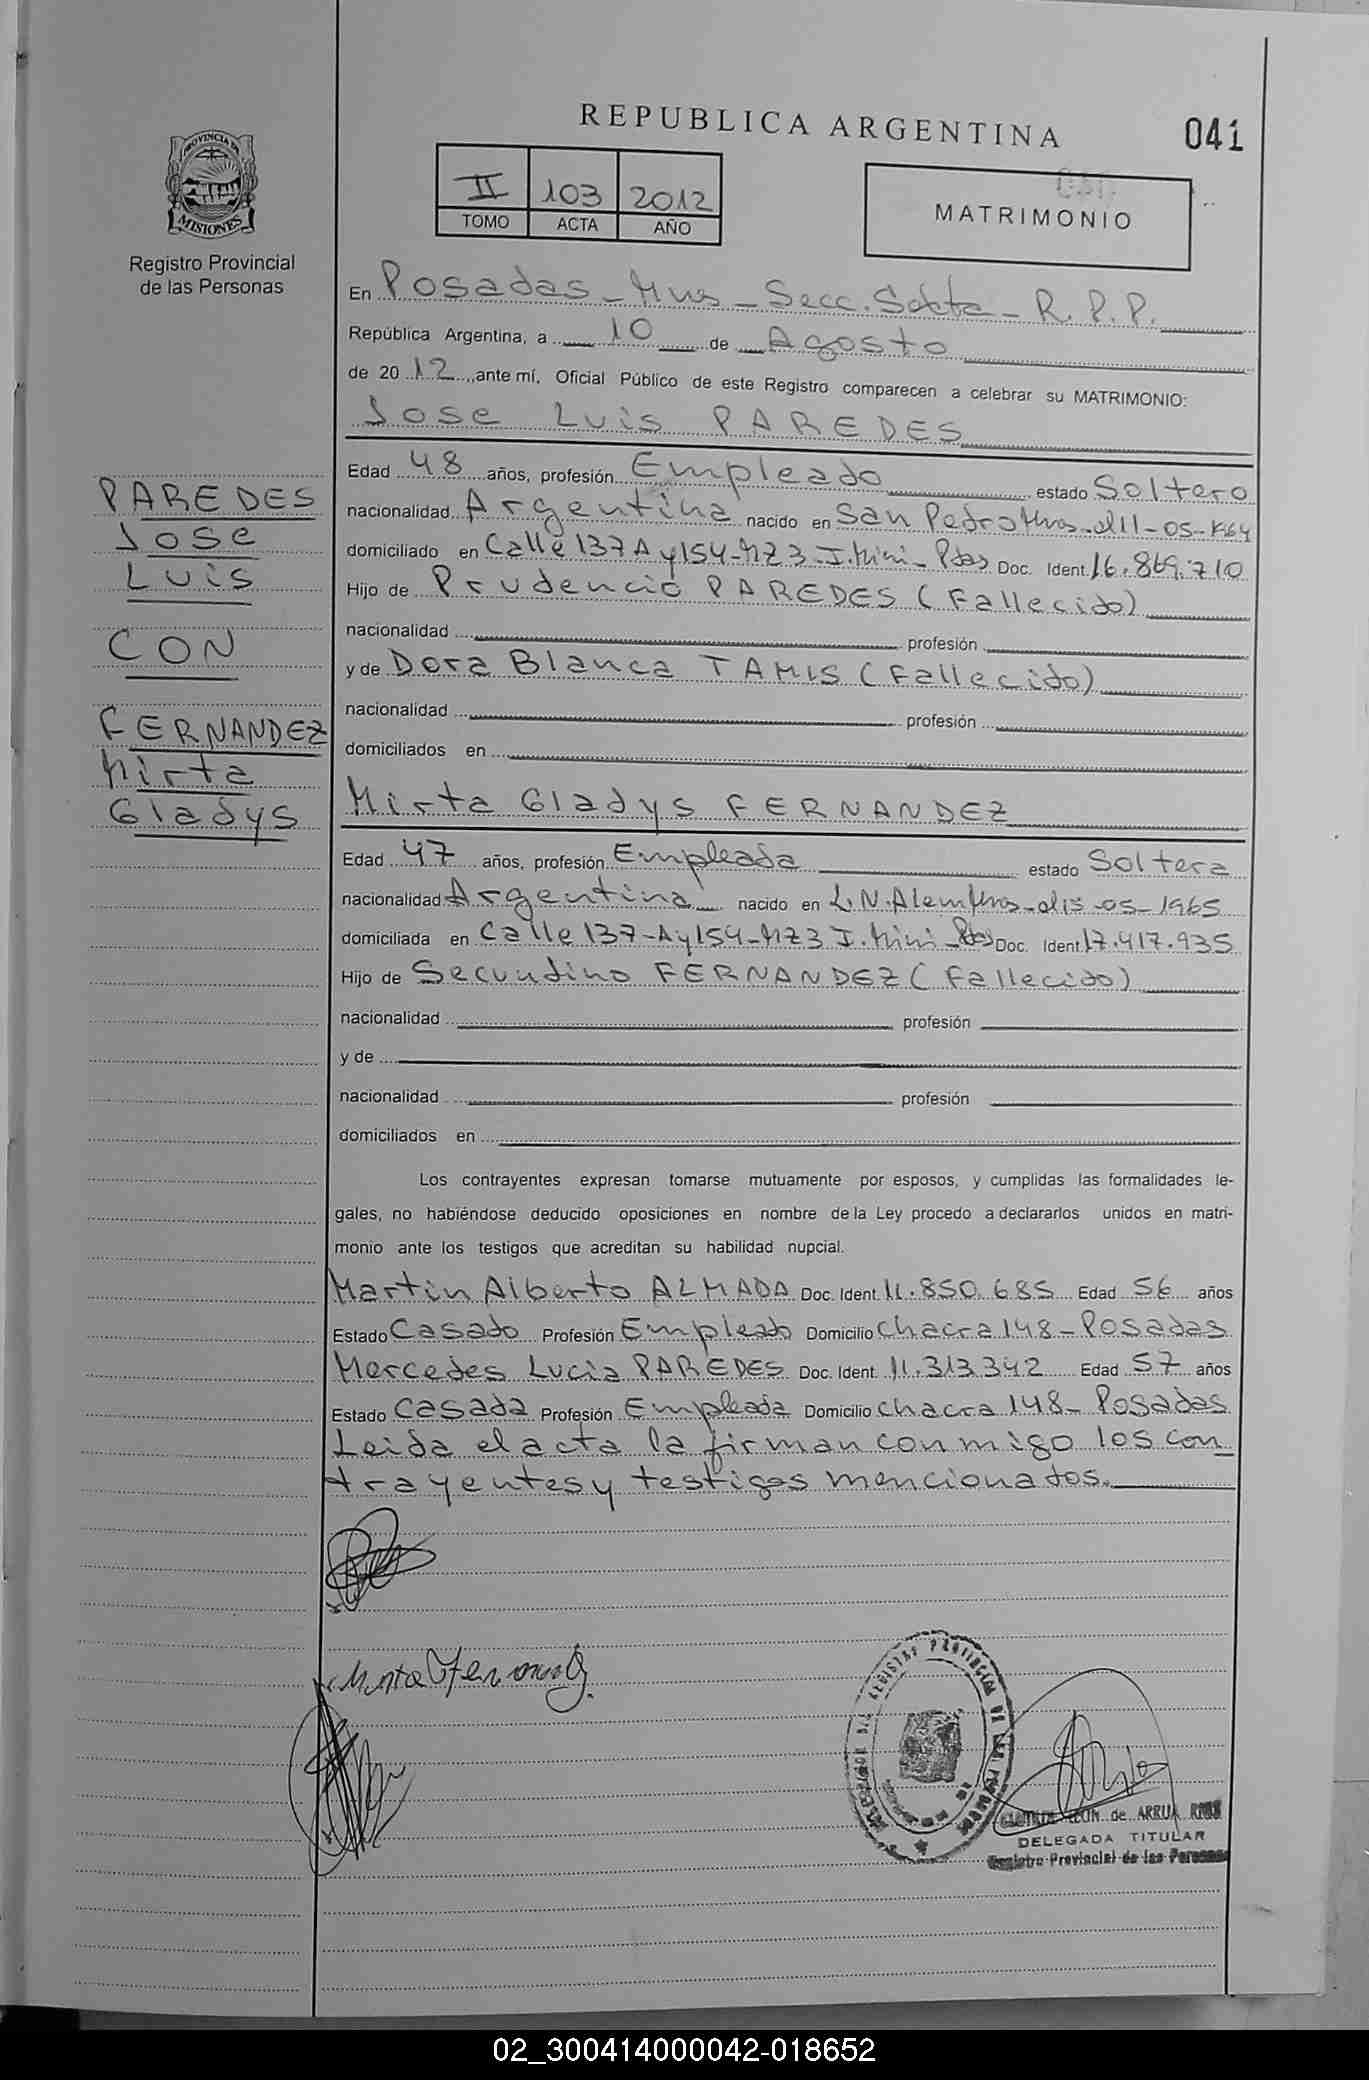 REPUBLICA ARGENTINA
041
PROVINCIA DE
MISIONES
Registro Provincial
de las Personas
II 103 2012
TOMO ACTA AÑO
MATRIMONIO
En Posadas - Mnes - Secc. Sexta - R.P.P.
República Argentina, a 10 de Agosto
de 2012, ante mí, Oficial Público de este Registro comparecen a celebrar su MATRIMONIO:
Jose Luis PAREDES
PAREDES
Jose
Luis
CON
FERNANDEZ
Mirta
Gladys
Edad 48 años, profesión Empleado estado Soltero
nacionalidad Argentina nacido en San Pedro Mnes - el 11-05-1964
domiciliado en Calle 137 A y 154 - Mz 3 - I. Mini - Pdas Doc. Ident. 16.869.710
Hijo de Prudencio PAREDES (Fallecido)
nacionalidad profesión
y de Dora Blanca TAMIS (Fallecido)
nacionalidad profesión
domiciliados en
Mirta Gladys FERNANDEZ
Edad 47 años, profesión Empleada estado Soltera
nacionalidad Argentina nacido en L.N. Alem Mnes - el 15-05-1965
domiciliada en Calle 137-A y 154 - Mz 3 I. Mini - Pdas Doc. Ident. 17.417.935
Hijo de Secundino FERNANDEZ (Fallecido)
nacionalidad profesión
y de
nacionalidad profesión
domiciliados en
Los contrayentes expresan tomarse mutuamente por esposos, y cumplidas las formalidades le-
gales, no habiéndose deducido oposiciones en nombre de la Ley procedo a declararlos unidos en matri-
monio ante los testigos que acreditan su habilidad nupcial.
Martin Alberto ALMADA Doc. Ident. 11.850.685 Edad 56 años
Estado Casado Profesión Empleado Domicilio Chacra 148 - Posadas
Mercedes Lucia PAREDES Doc. Ident. 11.313.342 Edad 57 años
Estado Casada Profesión Empleada Domicilio Chacra 148 - Posadas
Leida el acta la firman conmigo los con
trayentes y testigos mencionados.
de ARRUA
DELEGADA TITULAR
Registro Provincial de las Personas
02_300414000042-018652